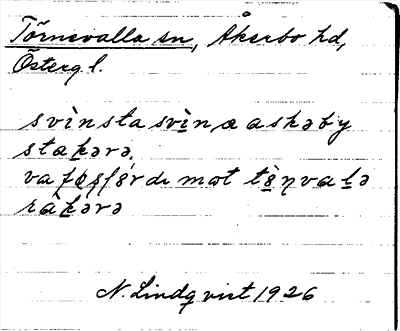 Törnevalla sn, Åkerbo hd,
Östergl.
svìnsta svìnα askəby
stakərə.
va fɵʂfɵ́rdι mαt tɵ̀ŋvaLə
ràkərə
N. Lindqvist 1926